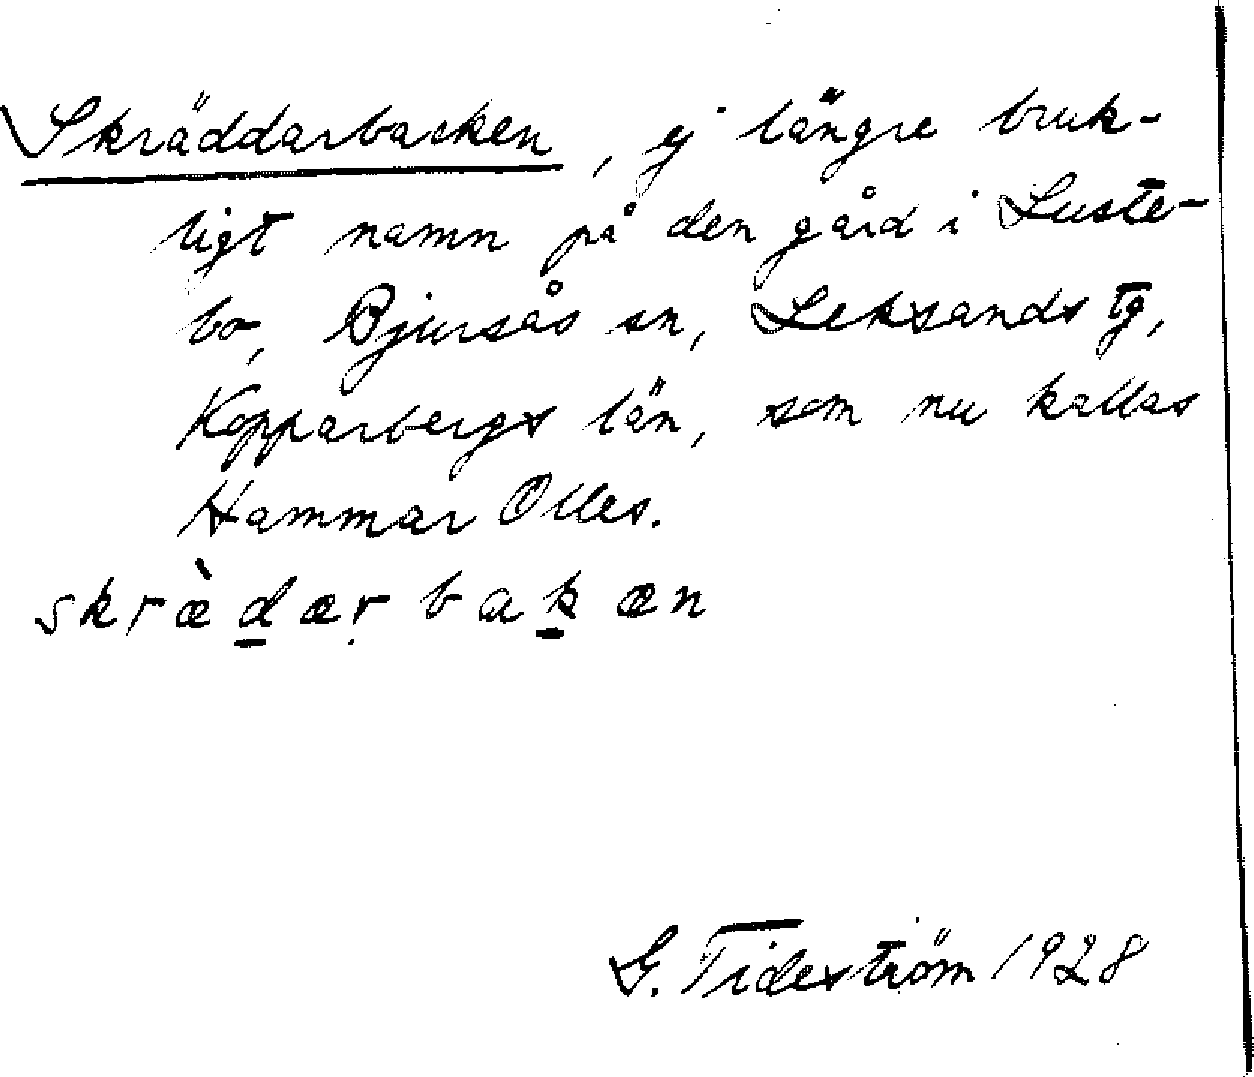 Skräddarbacken, ej längre bruk-
ligt namn på den gård i Luste-
bo, Bjursås sn, Leksands tg,
Kopparbergs län, som nu kallas
Hammar Olles.
skræ̀d̲ær̩bak̲æn
G. Tideström 1928